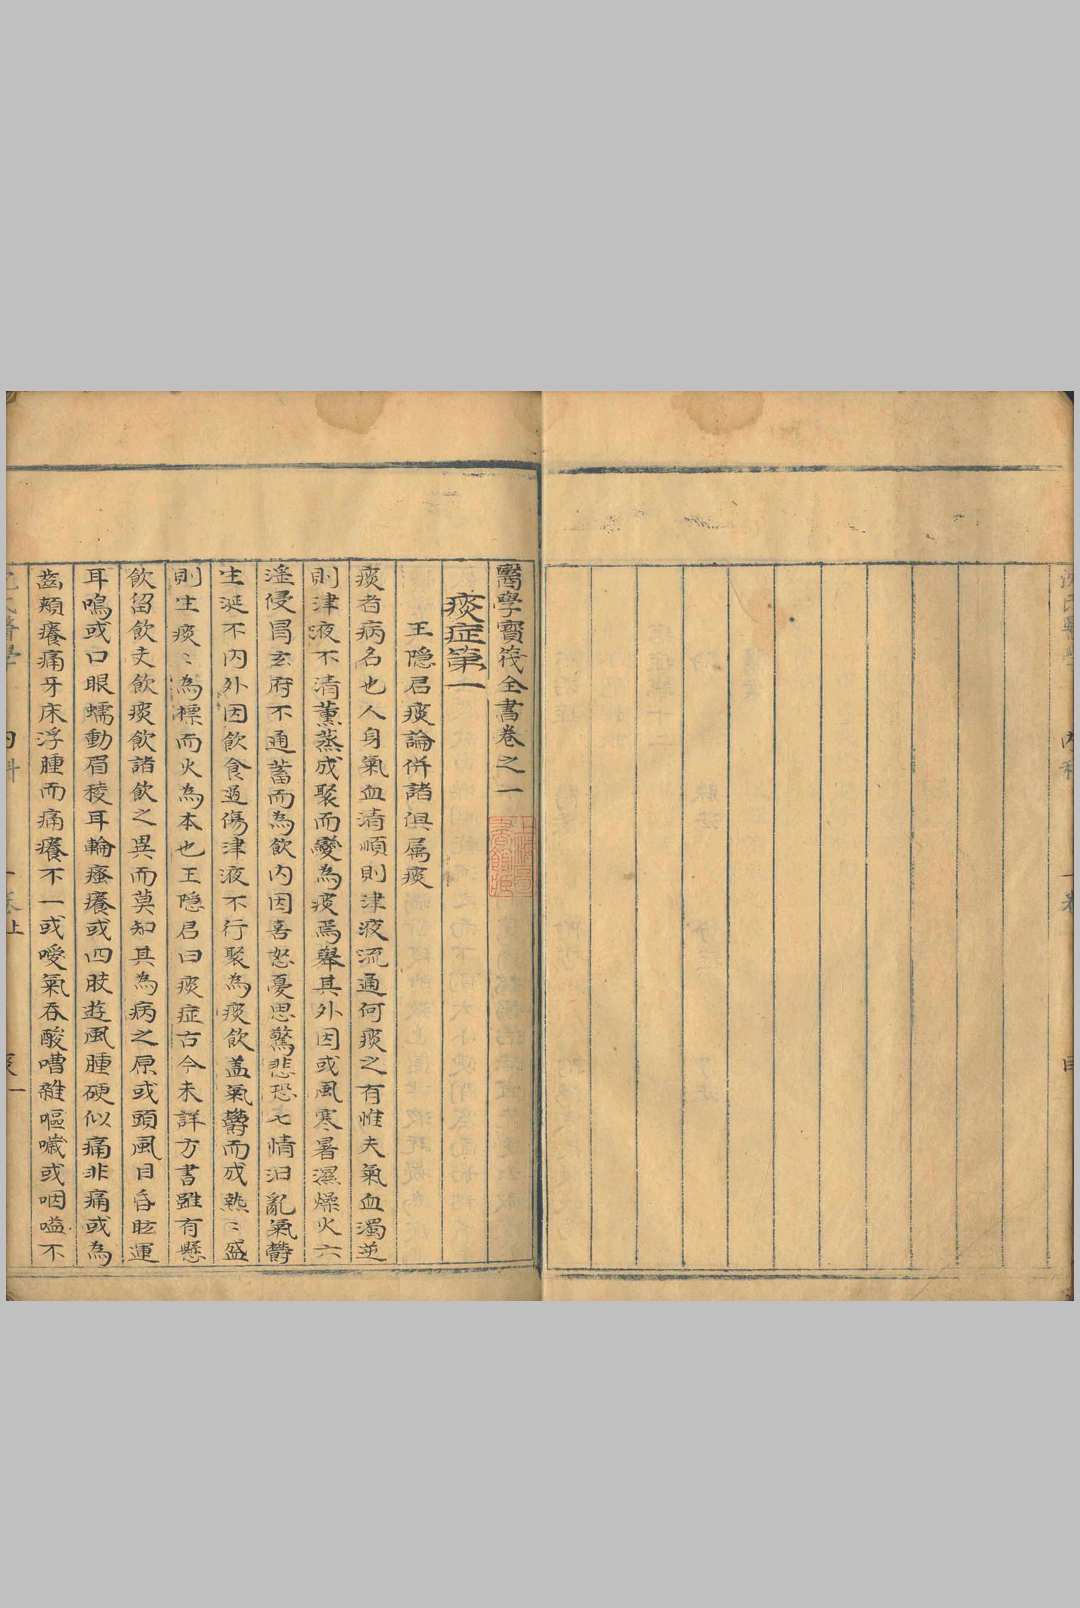 內
一卷
目
醫學寶筏全書卷之一
痰症第一
王隐君痰論併諸俱属痰
痰者病名也人身氣血清順則津液流通何痰之有惟夫氣血濁逆
則津液不清薰蒸成聚而變為痰焉舉其外因或風寒暑濕燥火六
滛侵冒玄府不通蓄而為飲内因喜怒憂思驚悲恐七情汩亂氣欝
生涎不内外因飲食過傷津液不行聚為痰飲盖氣欝而成熱〻盛
則生痰〻為標而火為本也王隐君曰痰症古今未詳方書雖有懸
飲留飲支飲痰飲諸飲之異而莫知其為病之原或頭風目昏眩運
耳鳴或口眼蠕動眉稜耳輪瘙癢或四肢遊風腫硬似痛非痛或為
齒頰癢痛牙床浮腫而痛癢不一或噯氣吞酸嘈雜嘔噦或咽嗌不
氏醫學
内科
一卷上